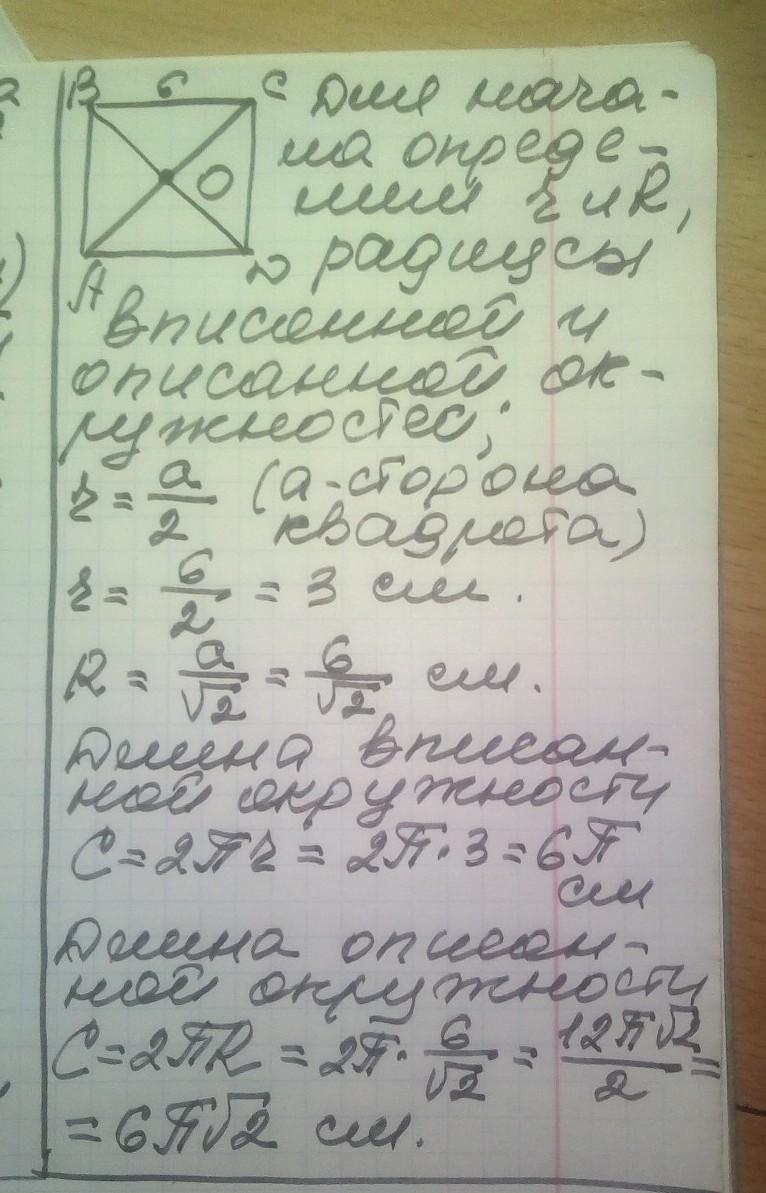 B 6 C Для нача-
ла опреде-
O лим r и R,
A D радиусы
вписанной и
описанной ок-
ружностей;
r = a/2 (a-сторона
квадрата)
r = 6/2 = 3 см.
R = a/√2 = 6/√2 см.
Длина вписан-
ной окружности
C = 2πr = 2π·3 = 6π
см
Длина описан-
ной окружности
C = 2πR = 2π· 6/√2 = 12π√2/2 =
= 6π√2 см.